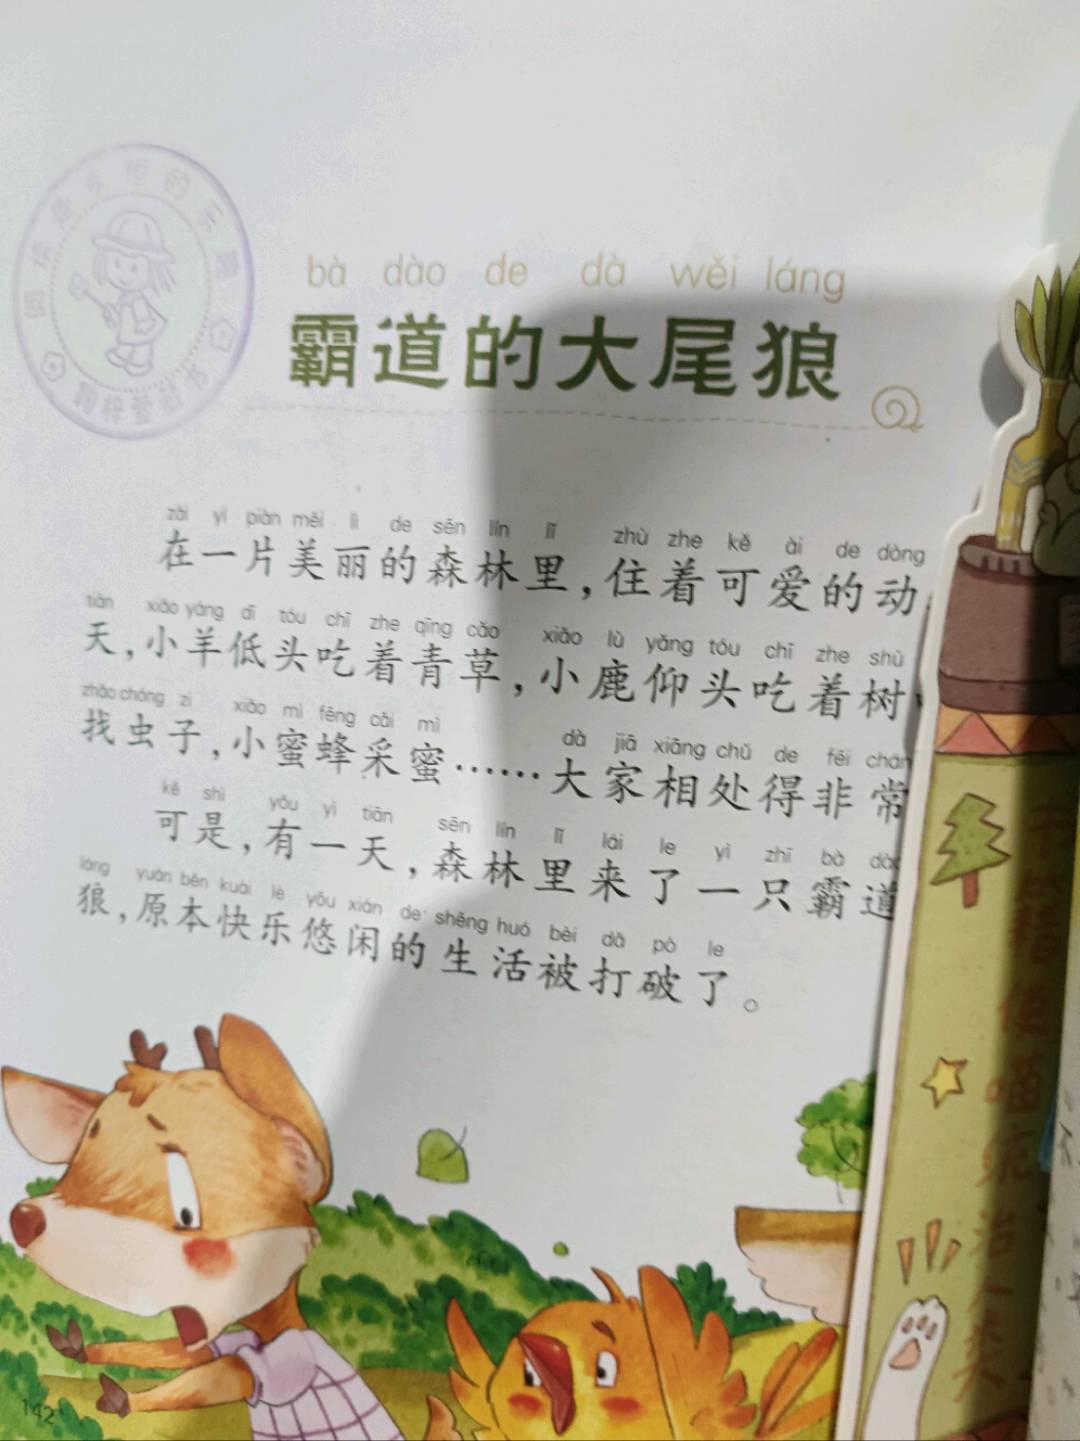 bà dào de dà wěi láng
霸道的大尾狼
zài yí piàn měi lì de sēn lín lǐ zhù zhe kě ài de dòng
在一片美丽的森林里,住着可爱的动
tiān xiǎo yáng dī tóu chī zhe qīng cǎo xiǎo lù yǎng tóu chī zhe shù
天,小羊低头吃着青草,小鹿仰头吃着树
zhǎo chóng zi xiǎo mì fēng cǎi mì dà jiā xiāng chǔ de fēi chán
找虫子,小蜜蜂采蜜……大家相处得非常
kě shì yǒu yì tiān sēn lín lǐ lái le yì zhī bà dào
可是,有一天,森林里来了一只霸道
láng yuán běn kuài lè yōu xián de shēng huó bèi dǎ pò le
狼,原本快乐悠闲的生活被打破了。
142